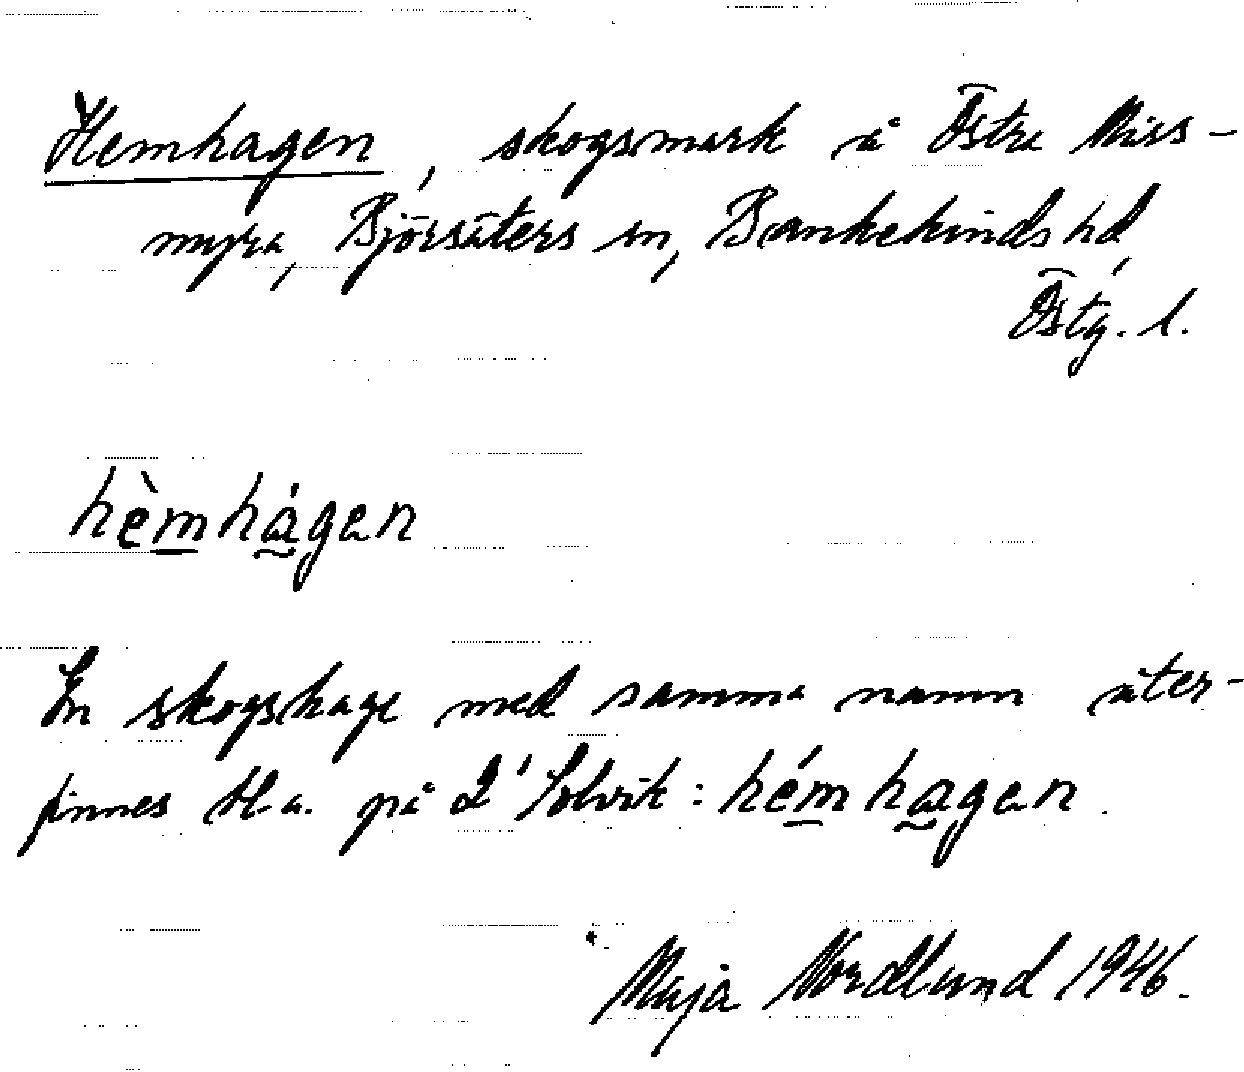 Hemhagen, skogsmark å Östra Miss-
myra, Björsäters sn, Bankekinds hd,
Östg. l.
hèmhágen
En skogshage med samma namn åter-
finnes bl.a. på L' Solvik: hémhagen.
Maja Nordlund 1946.